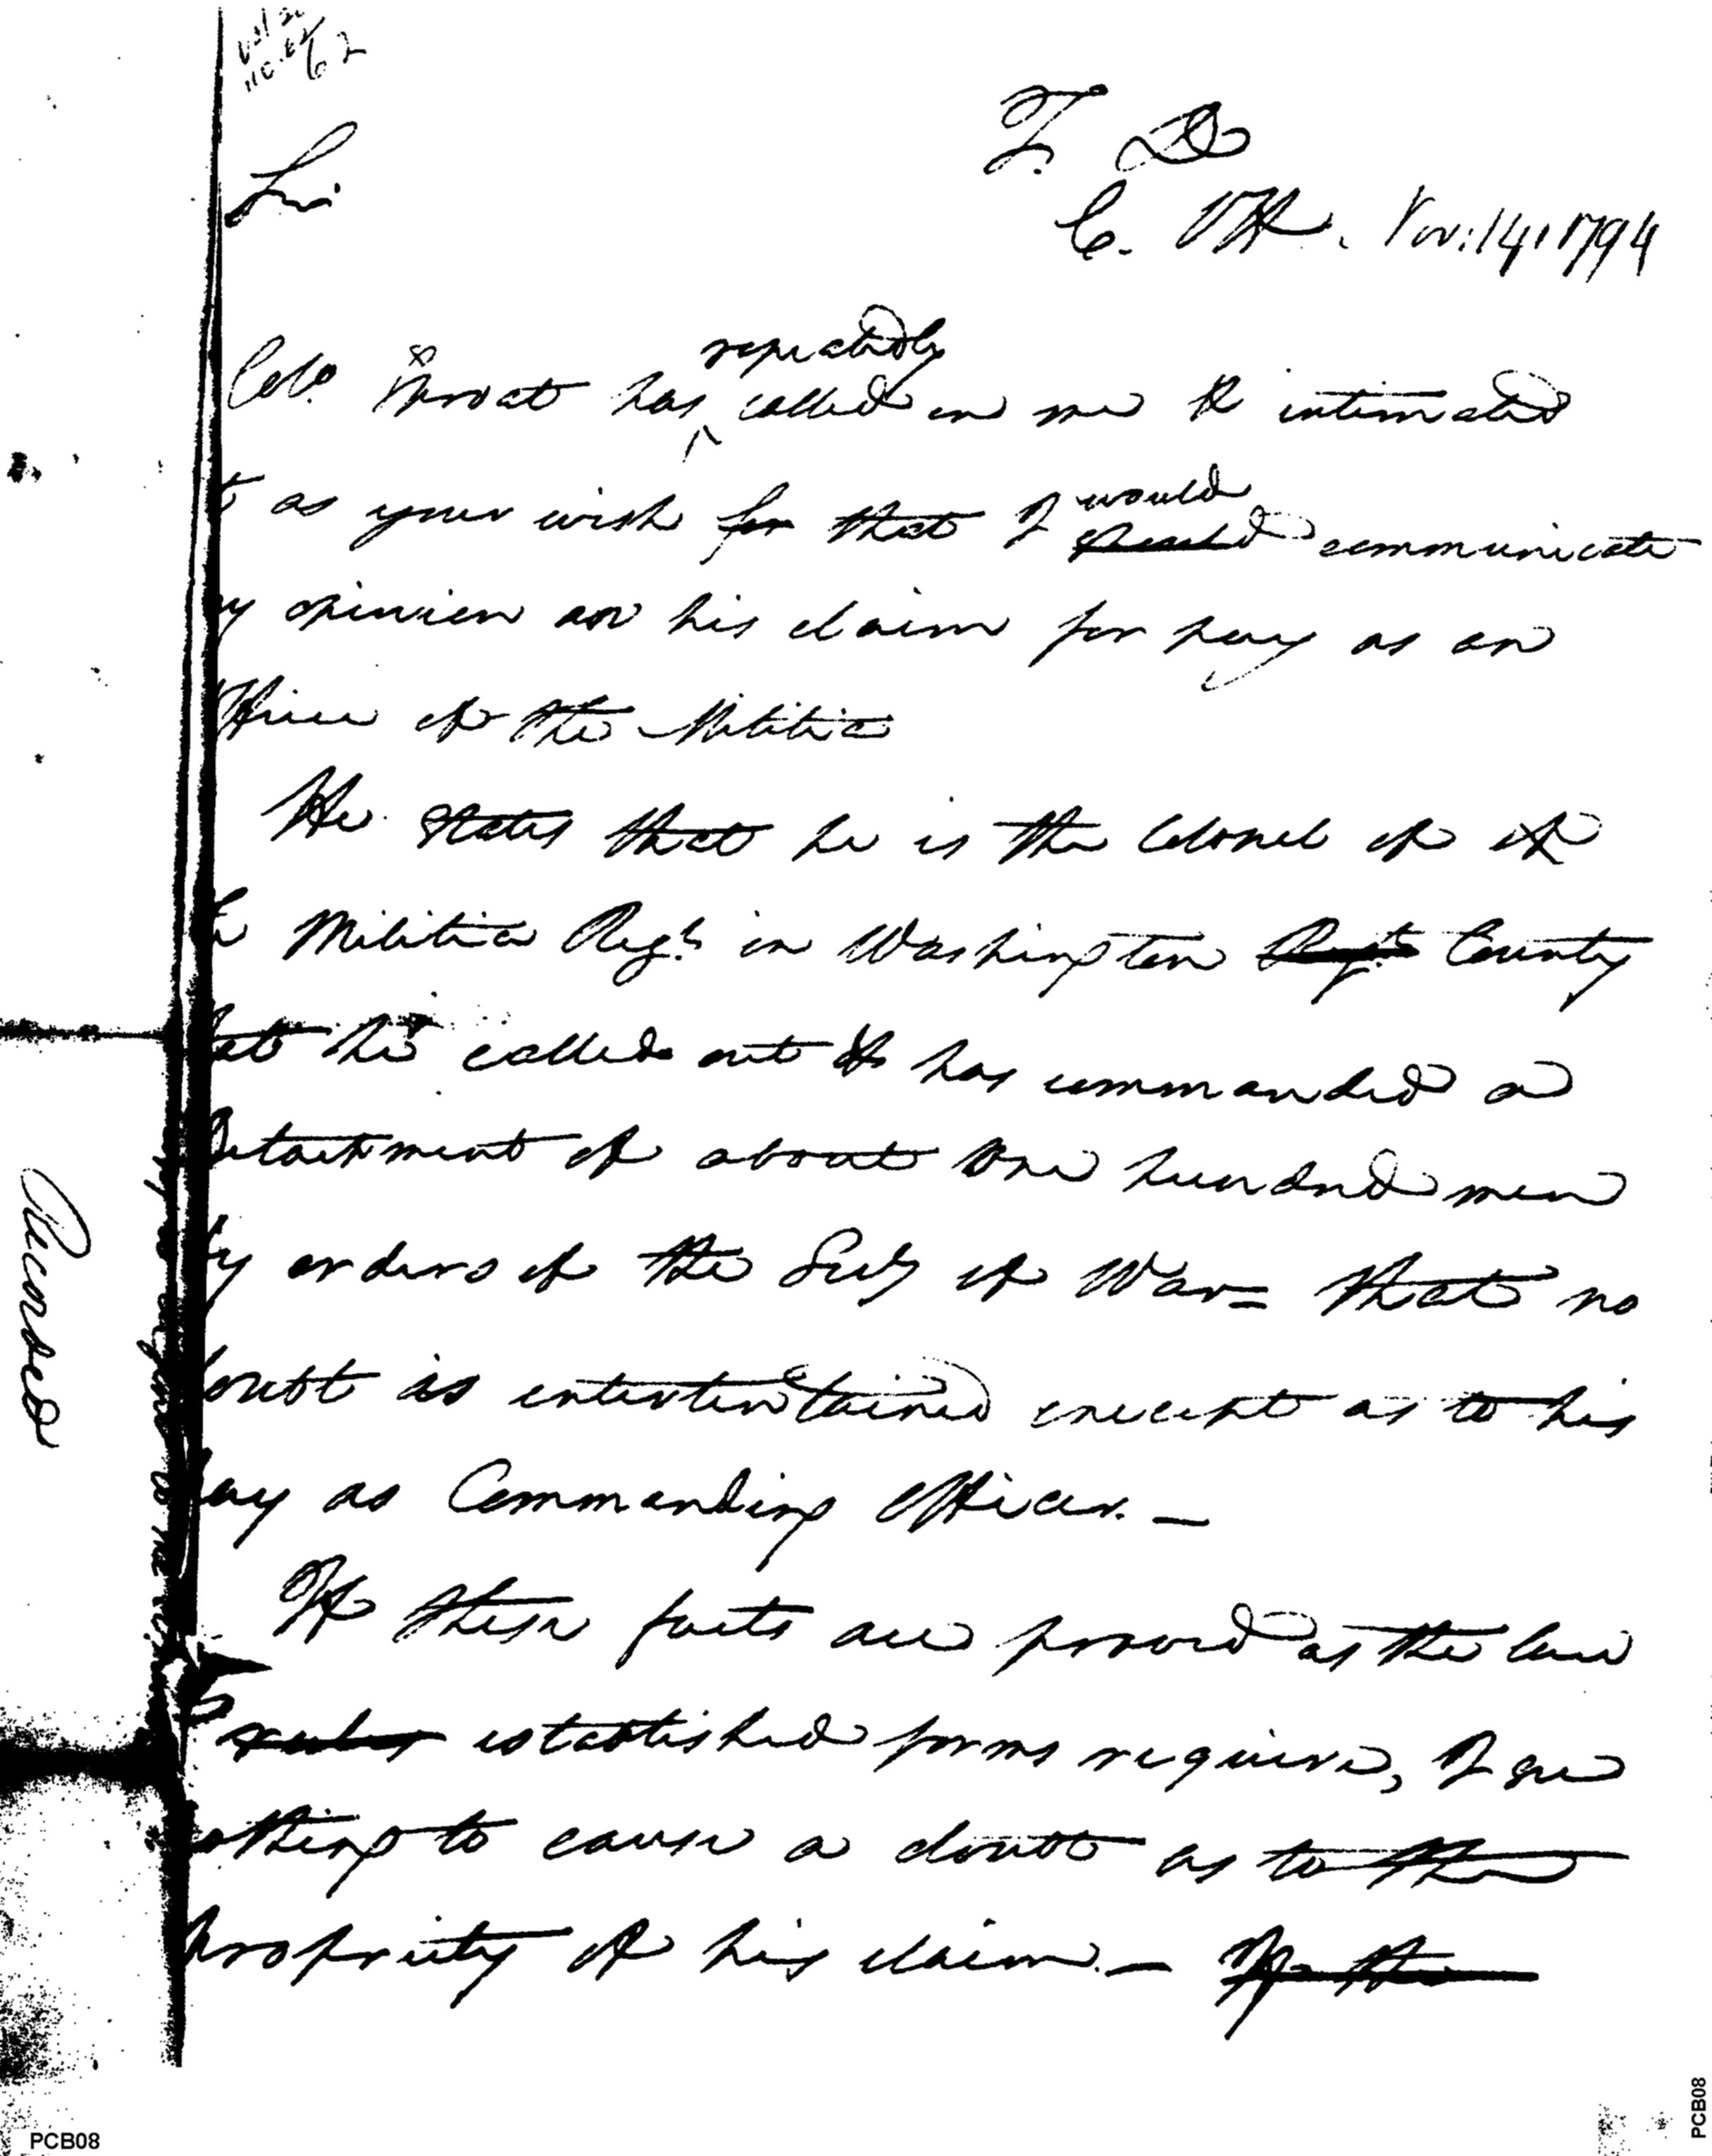 62
T. D
C. Off. Nov: 14, 1794
Sir
repeatedly
Colo. has called on me & intimated
t as your wish for that I would
communicate
y opinion on his claim for pay as an
fficer of the Militia
He States that he is the Colonel of
Militia Regt. in Washington Regt County
hat he called out & has commanded a
Detachment of about One hundred men
by orders of the Secy of War = that no
doubt is entertentained except as to his
pay as Commanding Officer. —
If these facts are proved as the law
& rules established forms require, I see
nothing to cause a doubt as to the
propriety of his claim. — If the
PCB08
PCB08